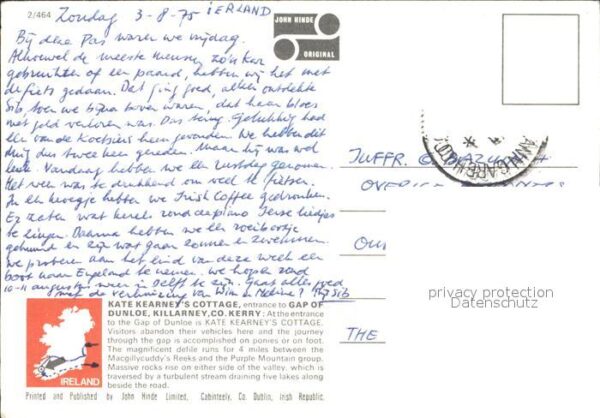 2/464 Zondag 3-8-75 IERLAND
JOHN HINDE
ORIGINAL
Bij deze Pas waren we vrijdag.
Alhoewel de meeste mensen zo'n kar
gebruikten of een paard, hebben wij het met
de fiets gedaan. Dat ging goed, alleen ontdekte
Sib, toen we bijna boven waren, dat haar bloes
met geld verloren was. Dus terug. Gelukkig had
een van de Koetsiers hem gevonden. We hebben dit
stuk dus twee keer gereden. Maar hij was wel
leuk. Vandaag hebben we een rustdag genomen.
Het weer was te drukkend om veel te fietsen.
In een kroegje hebben we Irish Coffee gedronken.
Er zaten wat kerels rond de piano Ierse liedjes
te zingen. Daarna hebben we een roeibootje
gehuurd en zijn wat gaan zonnen en zwemmen.
We proberen aan het eind van deze week een
boot naar Engeland te nemen. We hopen rond
10-11 augustus weer in Delft te zijn. Gaat alles goed
met de verhuizing van Wim en Helène? Thijs Sib
JUFFR.
THE
privacy protection
Datenschutz
KATE KEARNEY'S COTTAGE, entrance to GAP OF
DUNLOE, KILLARNEY, CO. KERRY: At the entrance
to the Gap of Dunloe is KATE KEARNEY'S COTTAGE.
Visitors abandon their vehicles here and the journey
through the gap is accomplished on ponies or on foot.
The magnificent defile runs for 4 miles between the
Macgillycuddy's Reeks and the Purple Mountain group.
Massive rocks rise on either side of the valley, which is
traversed by a turbulent stream draining five lakes along
beside the road.
IRELAND
Printed and Published by John Hinde Limited, Cabinteely, Co. Dublin, Irish Republic.